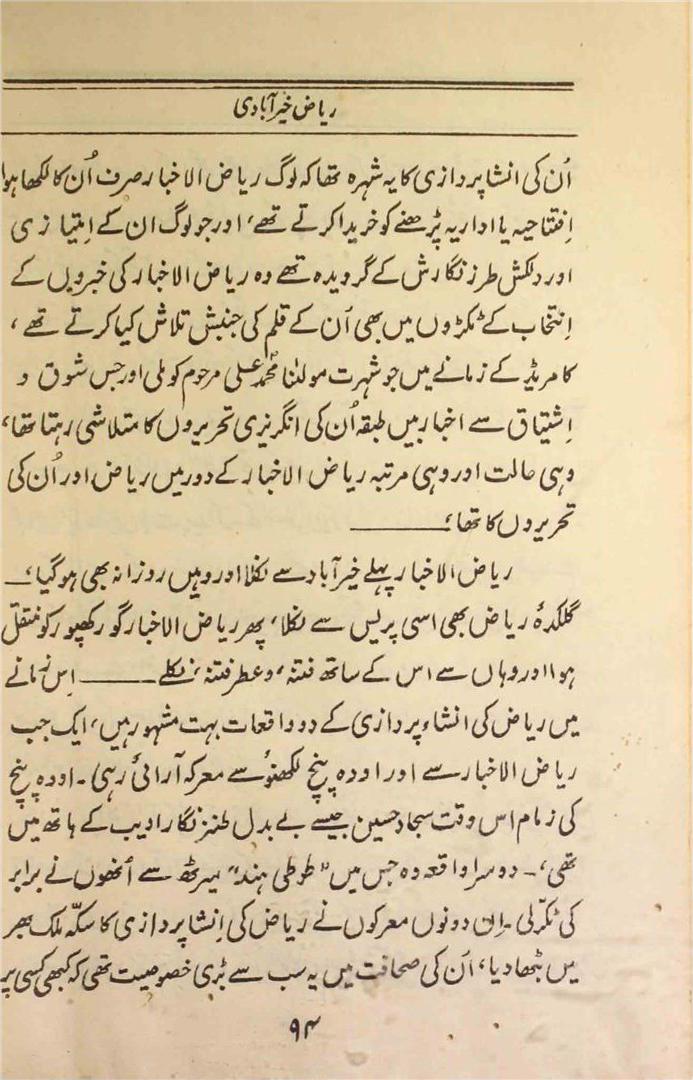 ریاض خیرآبادی
اُن کی انشاپردازی کا یہ شہرہ تھا کہ لوگ ریاض الاخبار صرف اُن کا لکھا ہوا
اِفتتاحیہ یا اداریہ پڑھنے کو خریدا کرتے تھے، اور جو لوگ ان کے اِمتیازی
اور دلکش طرز نگارش کے گرویدہ تھے وہ ریاض الاخبار کی خبروں کے
اِنتخاب کے ٹکڑوں میں بھی اُن کے قلم کی جنبش تلاش کیا کرتے تھے،
کامریڈ کے زمانے میں جو شہرت مولٰنا محمد علی مرحوم کو ملی اور جس شوق و
اِشتیاق سے اخبار بیں طبقہ اُن کی انگریزی تحریروں کا متلاشی رہتا تھا،
وہی حالت اور وہی مرتبہ ریاض الاخبار کے دور میں ریاض اور اُن کی
تحریروں کا تھا،ــــــــــ
ریاض الاخبار پہلے خیرآباد سے نکلا اور وہیں روزانہ بھی ہو گیا،ــ
گلکدۂ ریاض بھی اسی پریس سے نکلا، پھر ریاض الاخبار گورکھپور کو منتقل
ہوا اور وہاں سے اس کے ساتھ فتنہ، وعطر فتنہ، نکلے ــــــــ اس زمانے
میں ریاض کی انشاء پردازی کے دو واقعات بہت مشہور ہیں، ایک جب
ریاض الاخبار سے اور اودہ پنچ لکھنؤ سے معرکہ آرائی رہی۔ اودہ پنچ
کی زمام اس وقت سجاد حسین جیسے بے بدل طنز نگار ادیب کے ہاتھ میں
تھی،۔ دوسرا واقعہ وہ جس میں "طوطی ہند" میرٹھ سے اُنھوں نے برابر
کی ٹکّر لی۔ اِن دونوں معرکوں نے ریاض کی اِنشا پردازی کا سکّہ ملک بھر
میں بٹھا دیا، اُن کی صحافت میں یہ سب سے بڑی خصوصیت تھی کہ کبھی کسی پر
۹۴